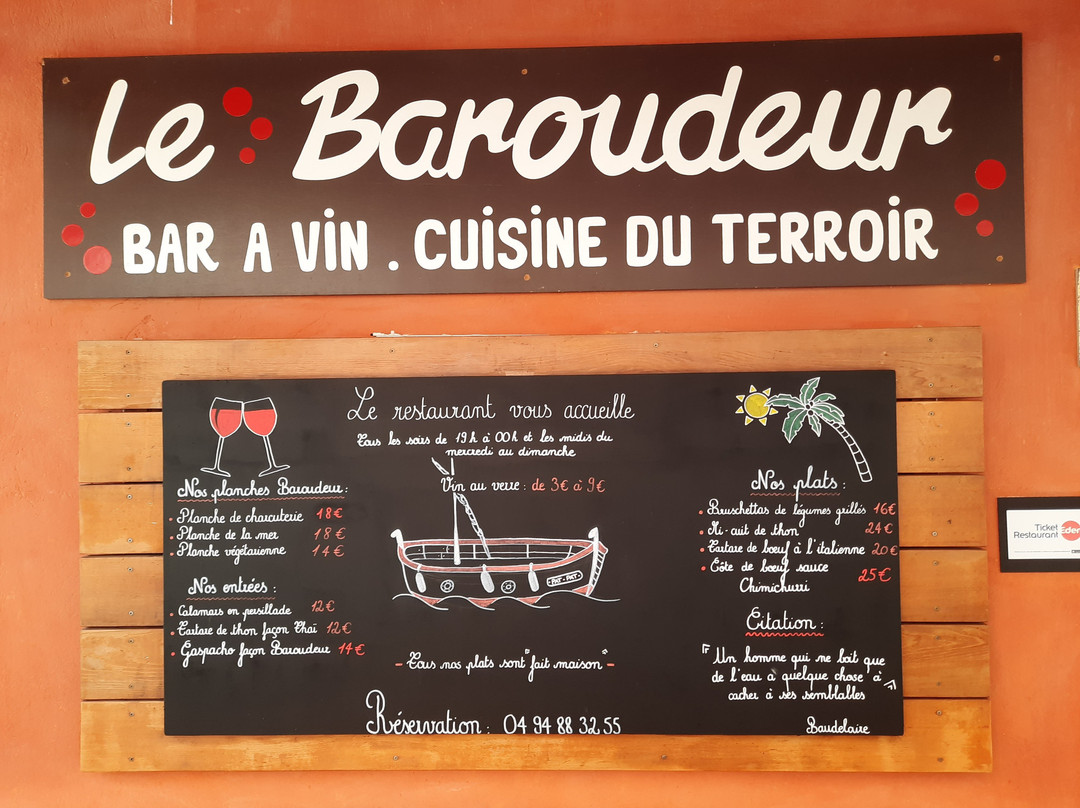 Le Baroudeur
BAR A ViN . CUiSiNE DU TERROiR
Le restaurant vous accueille
Tous les soirs de 19h à 00h et les midis du
mercredi au dimanche
Vin au verre : de 3€ à 9€
Nos planches Baroudeur :
Planche de charcuterie 18€
Planche de la mer 18€
Planche végétarienne 14€
Nos entrées :
Calamars en persillade 12€
Tartare de thon façon Thaï 12€
Gaspacho façon Baroudeur 14€
- Tous nos plats sont "fait maison" -
Réservation : 04 94 88 32 55
Nos plats :
Bruschettas de légumes grillés 16€
Mi-cuit de thon 24€
Tartare de bœuf à l'italienne 20€
Côte de bœuf sauce 25€
Chimichurri
Citation :
"Un homme qui ne boit que
de l'eau a quelque chose à
cacher à ses semblables"
Baudelaire
Ticket
Restaurant
Eden